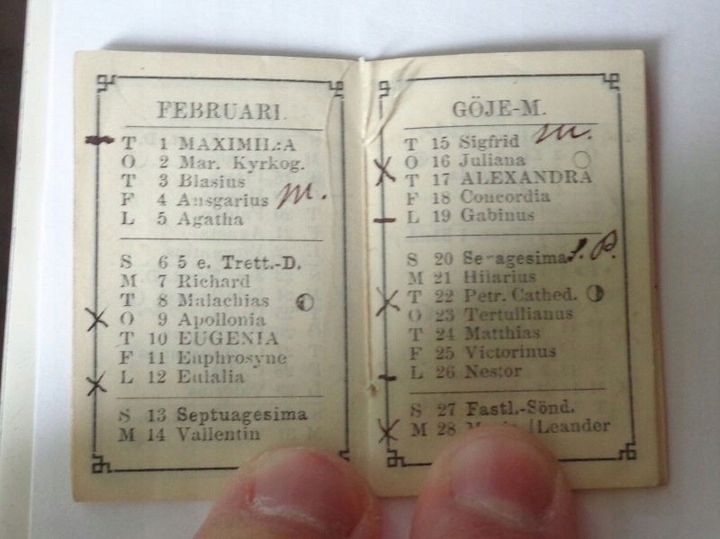 FEBRUARI.
T 1 MAXIMIL:A
O 2 Mar. Kyrkog.
T 3 Blasius
F 4 Ansgarius m.
L 5 Agatha
S 6 5 e. Trett.-D.
M 7 Richard
T 8 Malachias
O 9 Apollonia
T 10 EUGENIA
F 11 Euphrosyne
L 12 Eulalia
S 13 Septuagesima
M 14 Vallentin
GÖJE-M.
T 15 Sigfrid m.
O 16 Juliana
T 17 ALEXANDRA
F 18 Concordia
L 19 Gabinus
S 20 Se agesima S. P.
M 21 Hilarius
T 22 Petr. Cathed.
O 23 Tertullianus
T 24 Matthias
F 25 Victorinus
L 26 Nestor
S 27 Fastl.-Sönd.
M 28 Leander